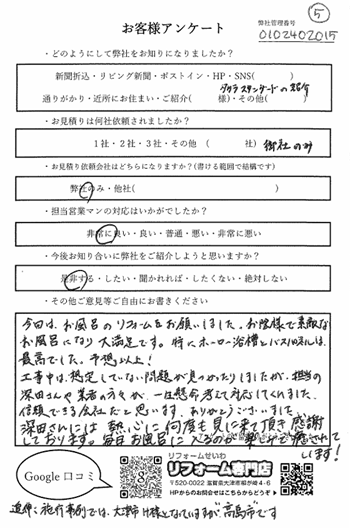 お客様アンケート
弊社管理番号
⑤
0102402015
・どのようにして弊社をお知りになりましたか？
新聞折込・リビング新聞・ポストイン・HP・SNS(　　　)
タカラスタンダードの紹介
通りがかり・近所にお住まい・ご紹介(　　　様)・その他(　　　)
・お見積りは何社依頼されましたか？
1社・2社・3社・その他　(　　　社) 御社のみ
・お見積り依頼会社はどちらになりますか？(書ける範囲で結構です)
弊社のみ・他社(　　　)
・担当営業マンの対応はいかがでしたか？
非常に良い・良い・普通・悪い・非常に悪い
・今後お知り合いに弊社をご紹介しようと思いますか？
是非する・したい・聞かれれば・したくない・絶対しない
・その他ご意見等ご自由にお書きください
今回は、お風呂のリフォームをお願いしました。お陰様で素敵な
お風呂になり大満足です。特にホーロー浴槽とパネルは、
最高でした。予想以上！
工事中は、想定していない問題が見つかりましたが、担当の
深田さんや業者の方々が、一生懸命考えて対応してくれました。
信頼できる会社だと思います。ありがとうございました。
深田さんには熱心に何度も見に来て頂き感謝
しております。毎日お風呂に入るのが楽しみで癒されて
います！
Google口コミ
リフォームせいわ
リフォーム専門店
〒520-0022 滋賀県大津市柳が崎4-6
HPからのお問合せはこちらからどうぞ
追伸：施行事例では、大津市H様となっていますが、高島市です